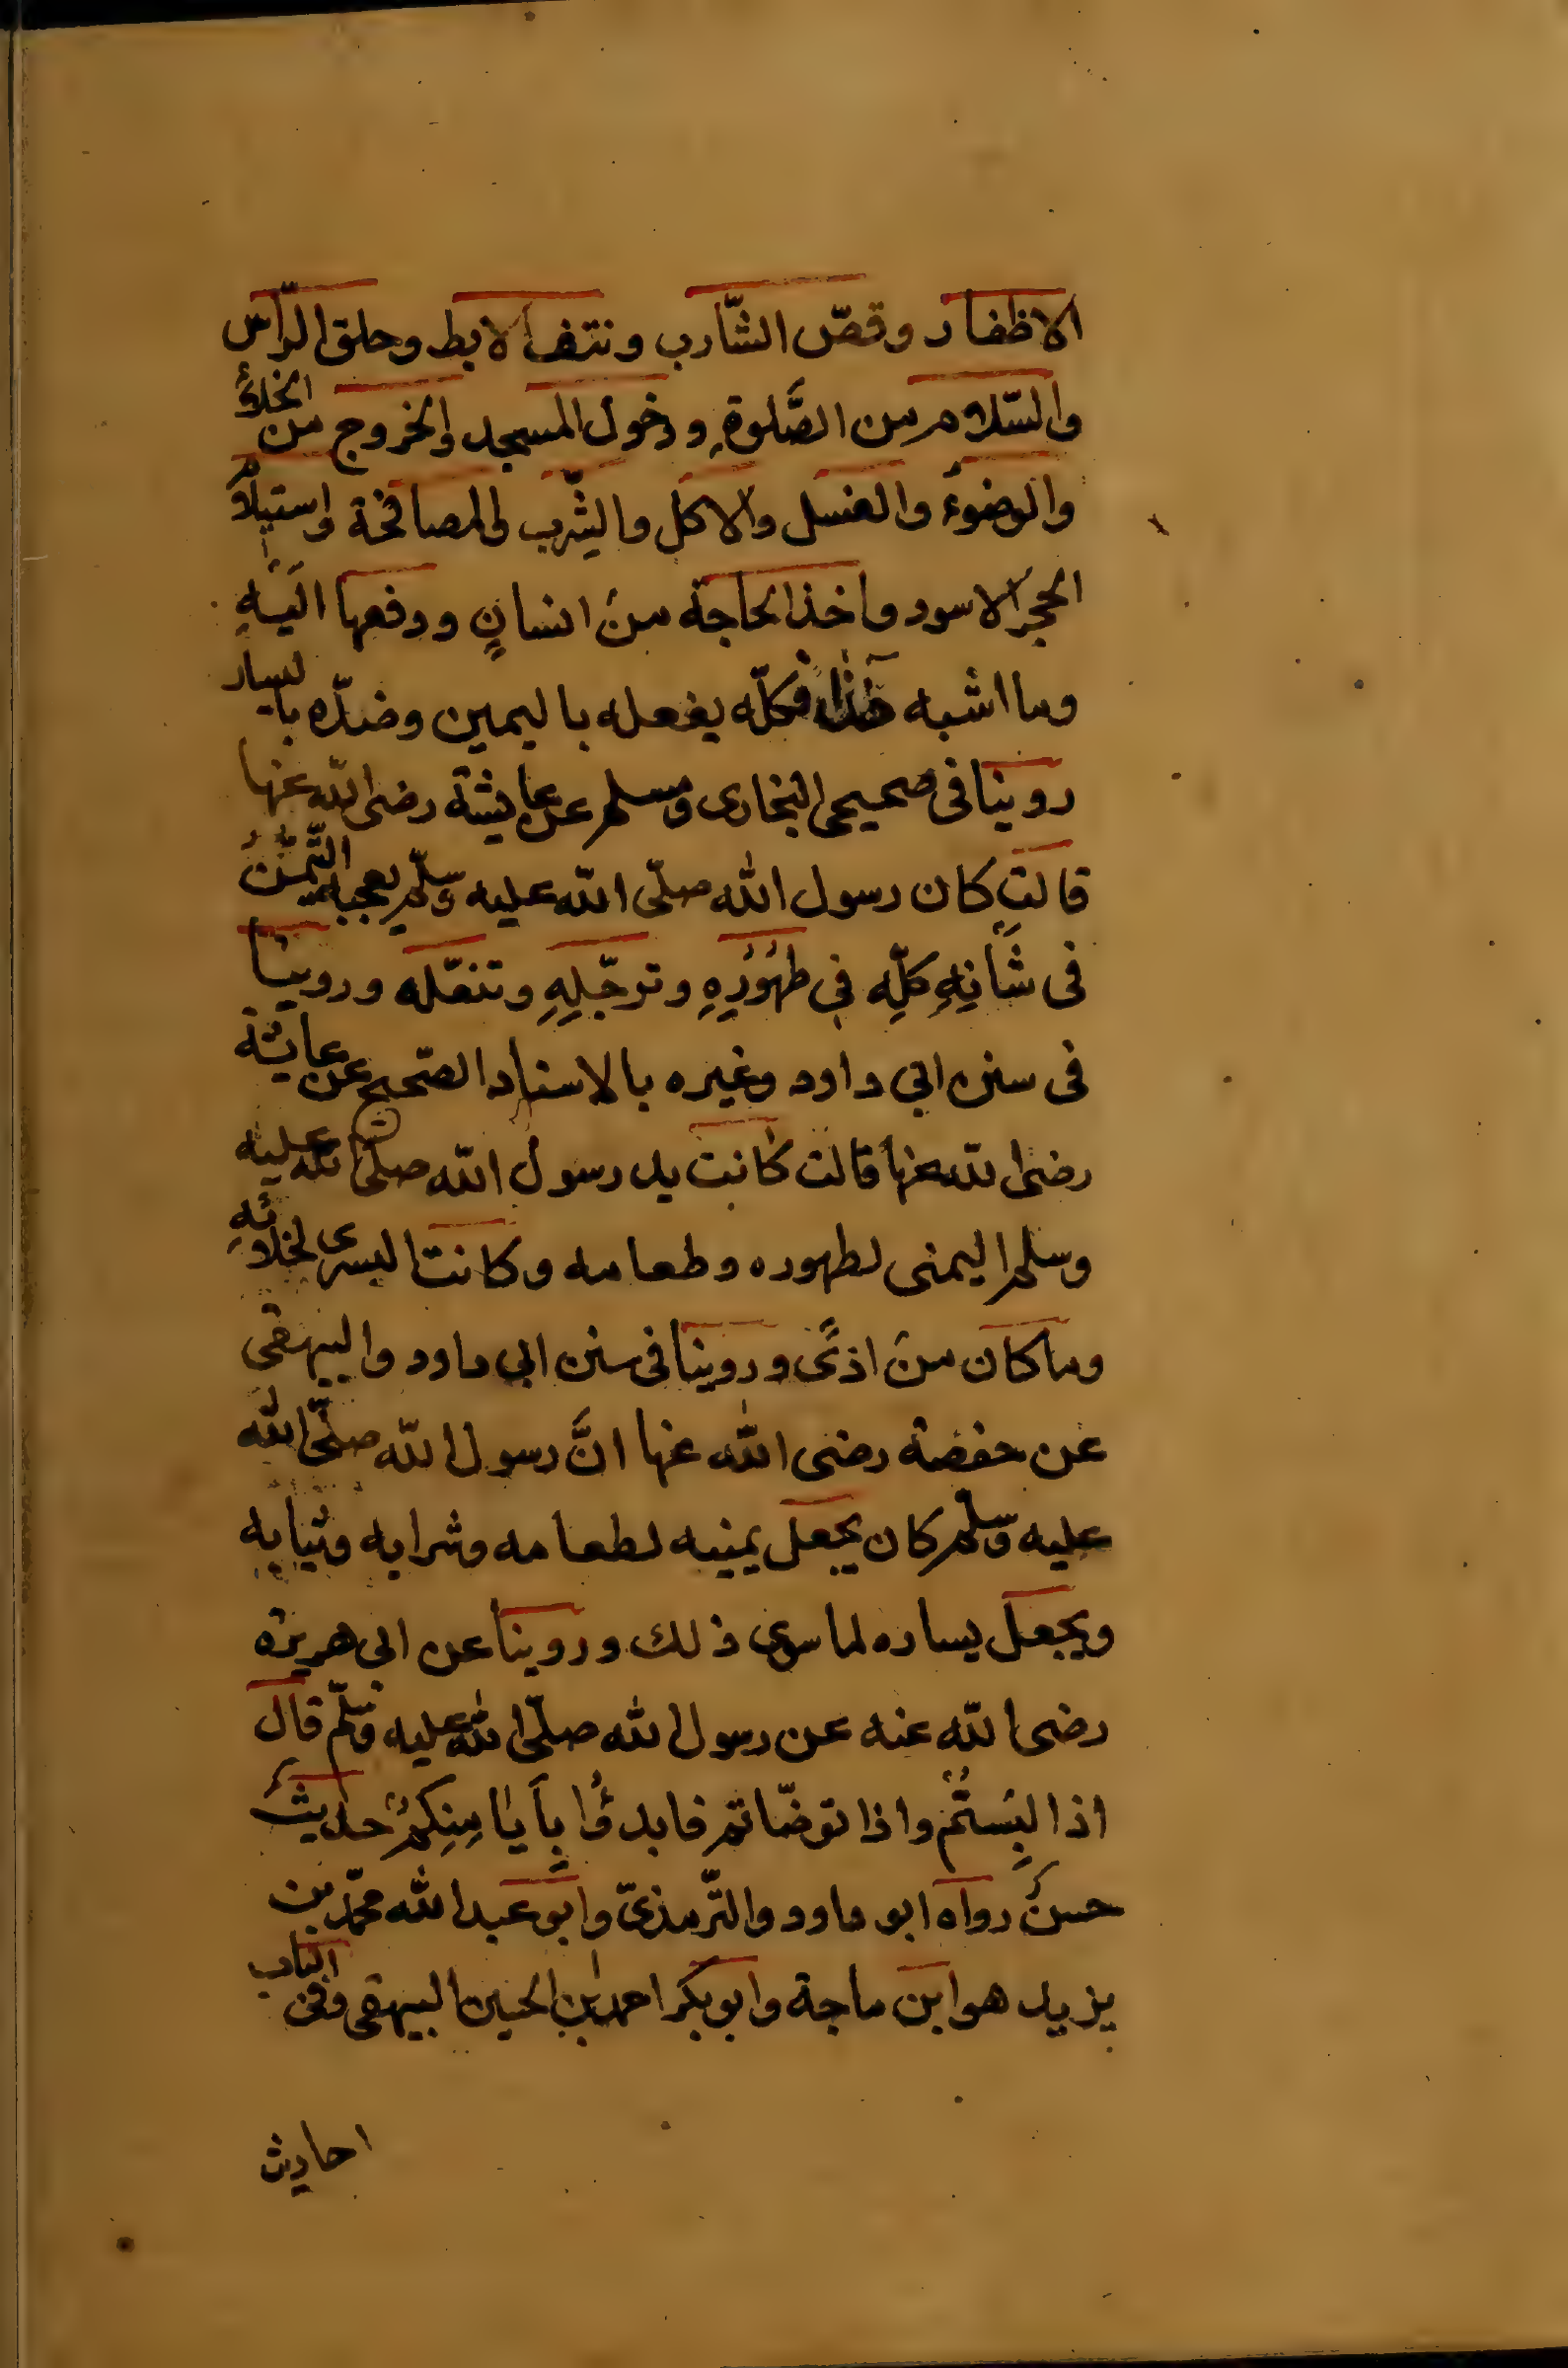 الاظفار وقصّ الشّارب ونتف الابط وحلق الرّأس
والسّلام من الصَّلوة ودخول المسجد والخروج من الخلاء
والوضوء والغسل والاكل والشّرب والمصافحة واستلام
الحجر الاسود واخذ الحاجة منْ انسانٍ ودفعها اليْهِ
وما اشبه هٰذا فكلّه يفعله باليمين وضدّه باليسار
روينا فى صحيحى البخارى ومسلم عن عايشة رضى اللّه عنها
قالت كان رسول اللّه صلّى اللّه عليه وسلّم يعجبه التَّيمّنُ
فى شَأنِهِ كلِّه فى طهُوْرِهِ وترجّلِهِ وتنعّله وروينا
فى سنن ابي داود وغيره بالاسناد الصّحيح عن عايشة
رضى اللّه عنها قالت كانت يد رسول اللّه صلّى اللّه عليه
وسلم اليمنى لطهوره وطعامه وكانت اليسرى لخلائِهِ
وما كان منْ اذىً وروينا فى سنن ابي داود والبيهقى
عن حفصة رضى اللّه عنها انَّ رسول اللّه صلّى اللّه
عليه وسلم كان يجعل يمينه لطعامه وشرابه وثيابه
ويجعل يساره لما سوى ذلك وروينا عن ابى هريرة
رضى اللّه عنه عن رسول اللّه صلّى اللّه عليه وسلّم قال
اذا لبِسْتُمْ واذا توضّاتم فابدؤُا بِأَيَامِنِكُمْ حديثٌ
حسنٌ رواه ابو داود والتّرمذىّ وابو عبد اللّه محمّد بن
يزيد هو ابن ماجة وابو بكر احمد بن الحسين البيهقى وفى الباب
احاديث